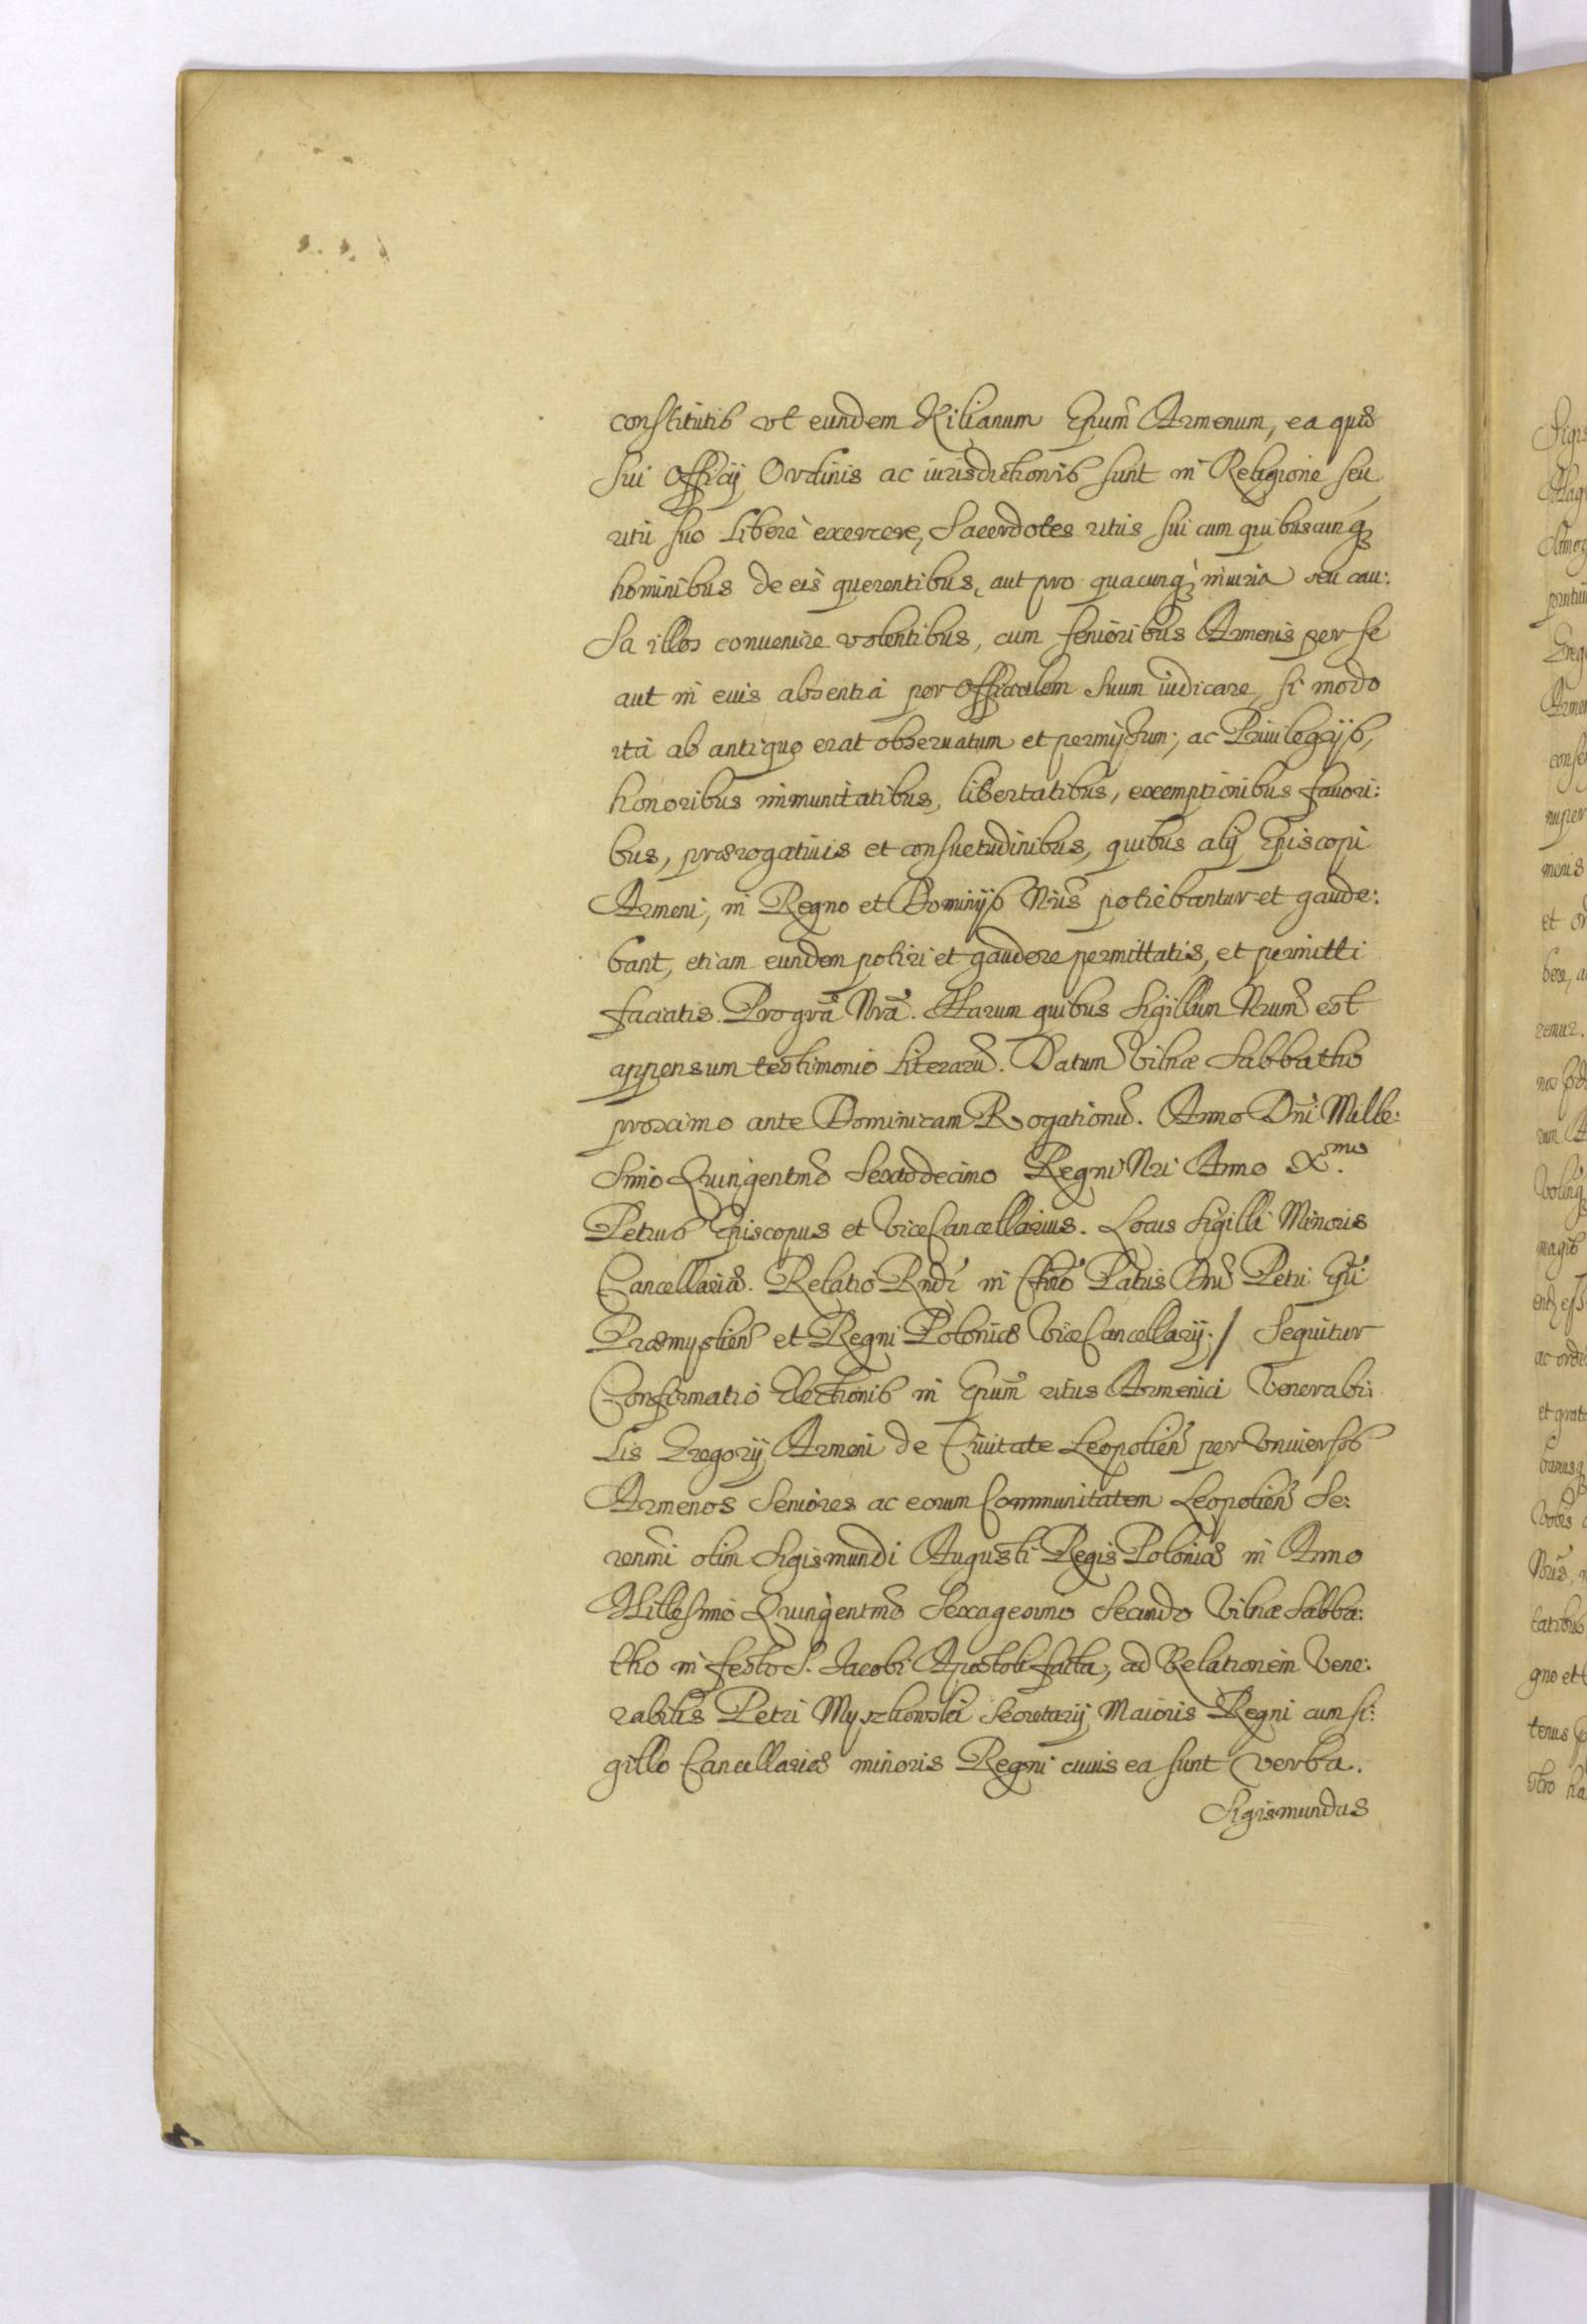 constitutis vt eundem Kilianum Epum Armenum, ea quæ
sui Officij Ordinis ac iurisdictionis sunt in Religione seu
ritu suo Libere exercere, Sacerdotes ritus sui cum quibuscunq
hominibus de eis querentibus, aut pro quacunq iniuria seu cau:
sa illos conuenire volentibus, cum senioribus Armenis per se
aut in eius absentia per Officialem suum iudicare, si modo
ita ab antiquo erat obseruatum et permissum; ac Priuilegijs,
honoribus immunitatibus, libertatibus, exemptionibus fauori:
bus, prærogatiuis et consuetudinibus, quibus alij Episcopi
Armeni, in Regno et Dominijs Nris potiebantur et gaude:
bant, etiam eundem potiri et gaudere permittatis, et permitti
faciatis. Pro gra Nra. Harum quibus Sigillum Nrum est
appensum testimonio Literaru. Datum Vilnæ Sabbatho
proximo ante Dominicam Rogationu. Anno Dni Mille:
simo Quingentmo Sextodecimo Regni Nri Anno Xmo.
Petrus Episcopus et ViceCancellarius. Locus Sigilli Minoris
Cancellariæ. Relatio Rndi in Chro Patris Dni Petri Epi
Præmyslien et Regni Poloniæ ViceCancellarij. / Sequitur
Confirmatio Electionis in Epum ritus Armenici Venerabi:
lis Gregorij Armeni de Ciuitate Leopolien per Vniuersos
Armenos Seniores ac eorum Communitatem Leopolien Se:
renmi olim Sigismundi Augusti Regis Poloniæ in Anno
Millesimo Quingentmo Sexagesimo Secundo Vilnæ Sabba:
tho in festo S. Jacobi Apostoli facta, ad Relationem Vene:
rabilis Petri Myszkowski Secretarij Maioris Regni cum si:
gillo Cancellariæ minoris Regni cuius ea sunt verba.
Sigismundus